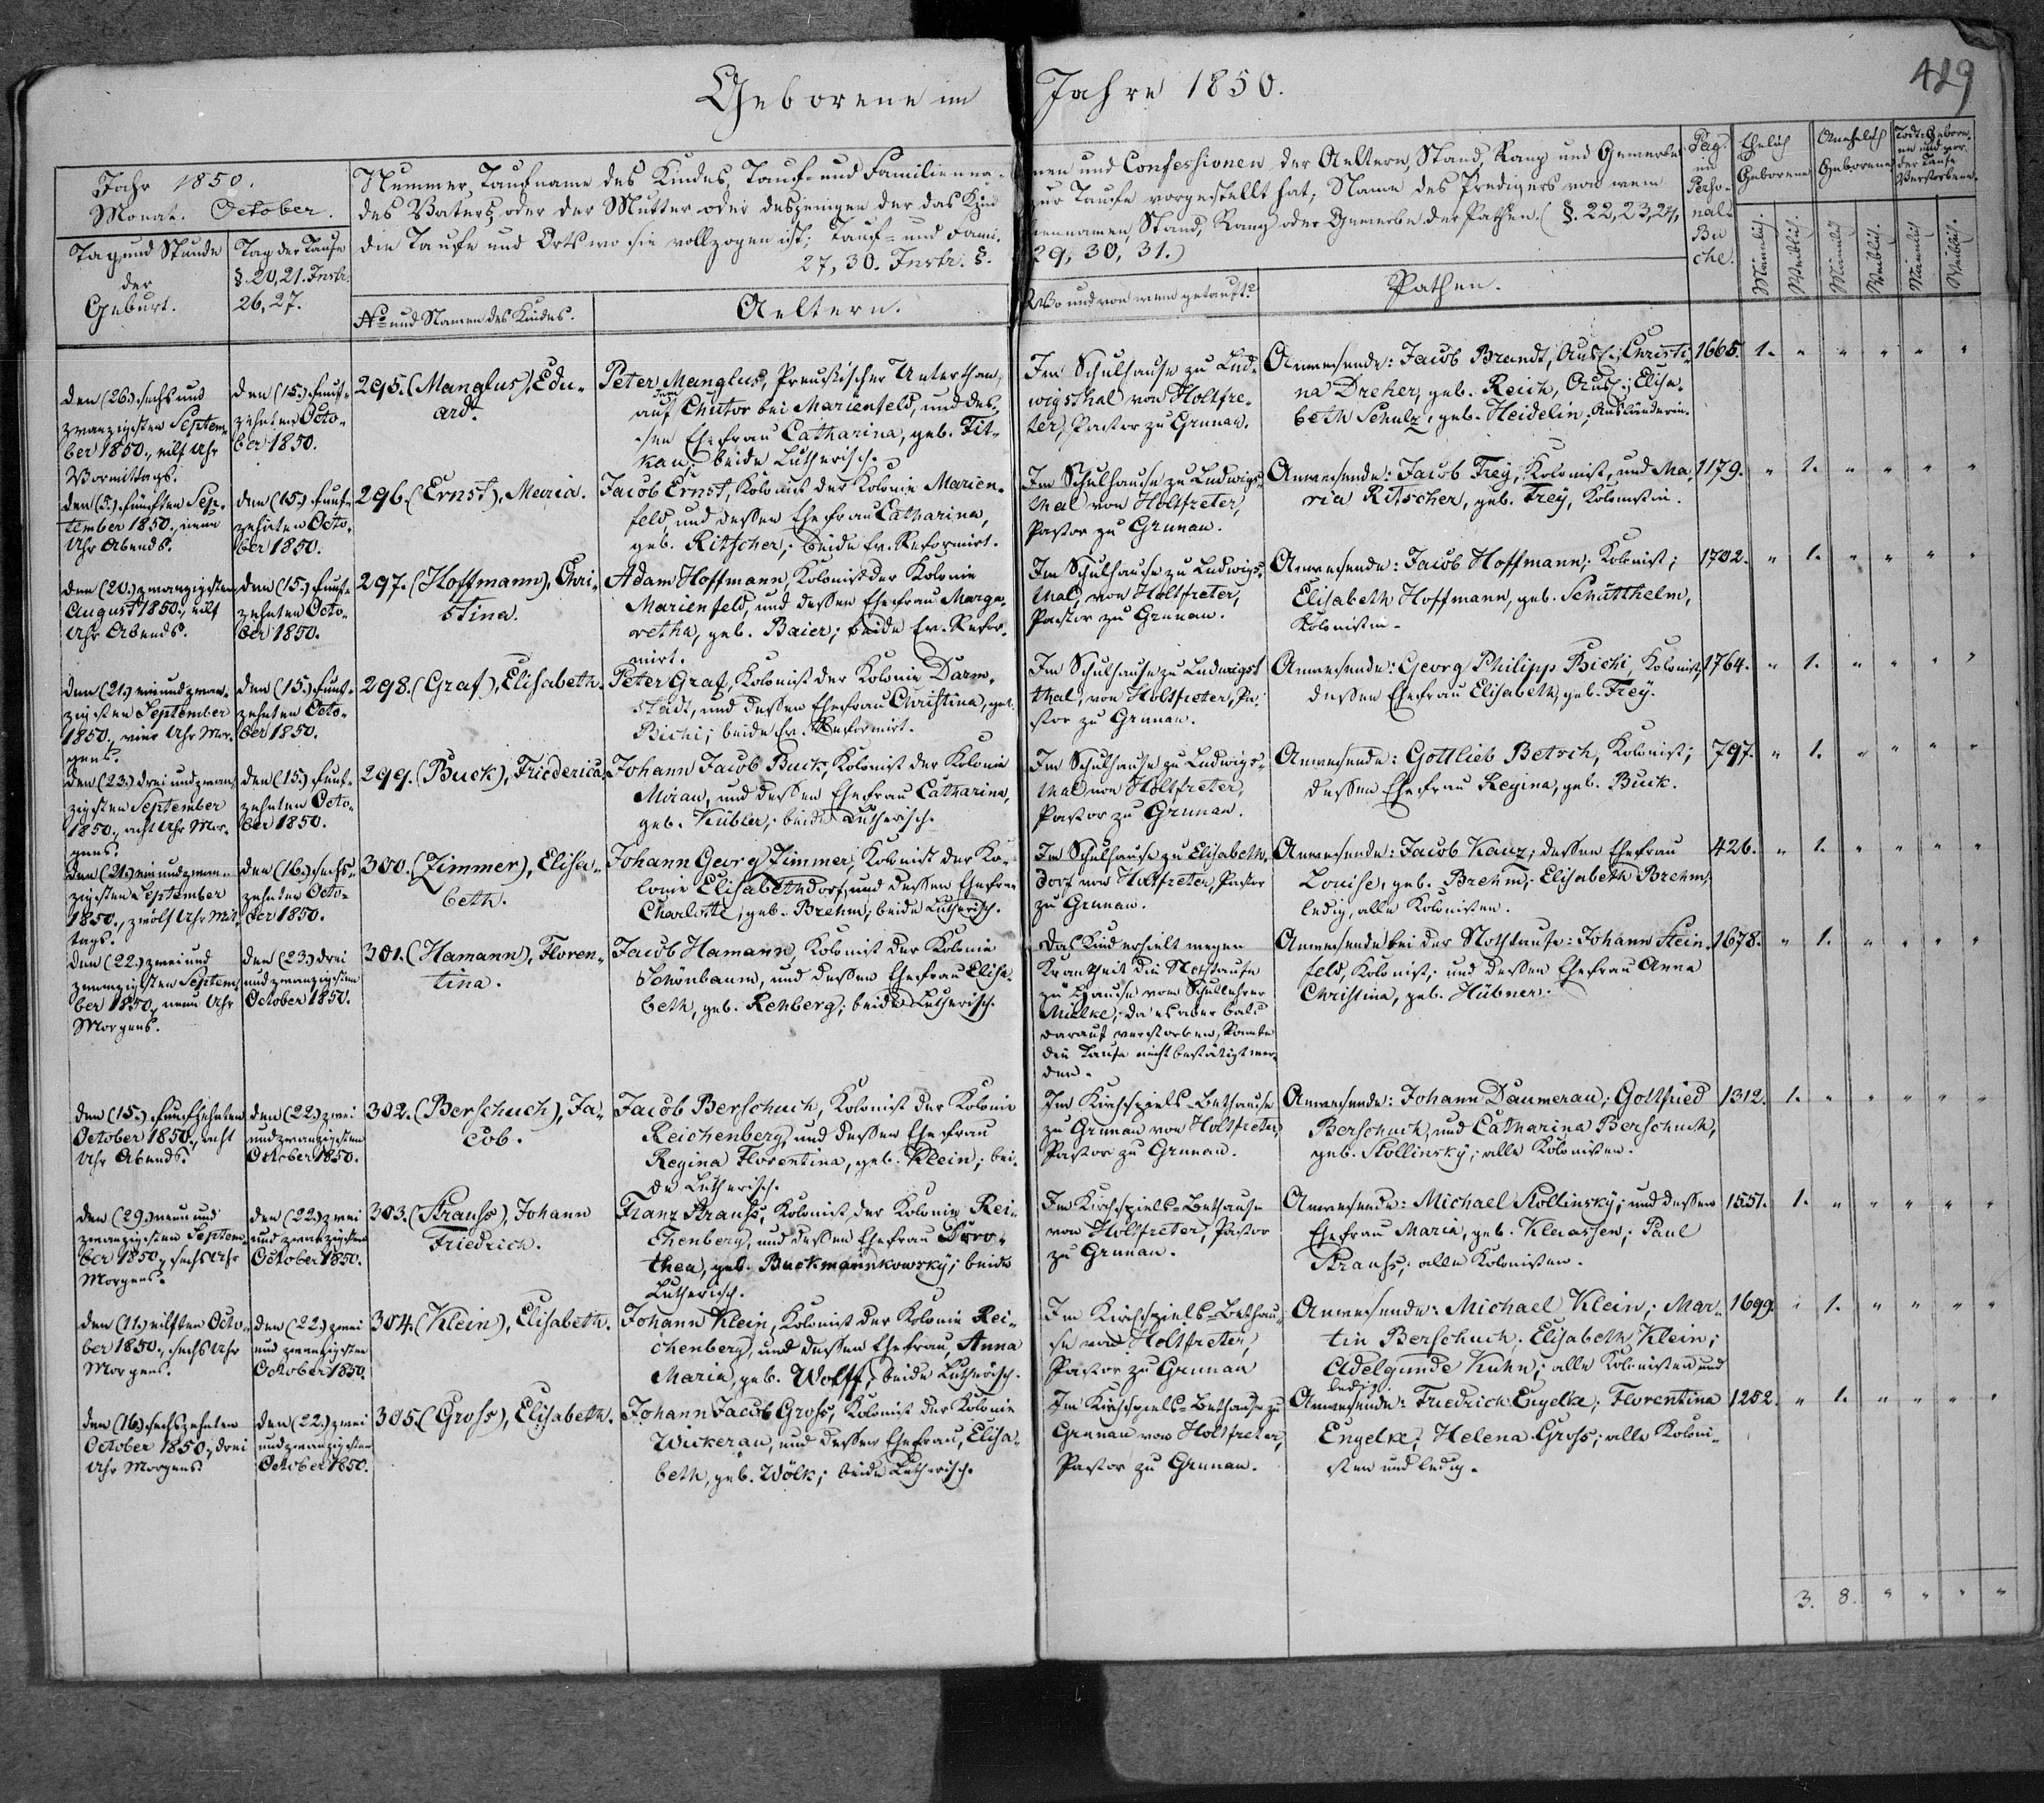 Geborene im Jahre 1850.
429
Jahr 1850.
Monat. October.
Tag und Stunde
der
Geburt.
Tag der Taufe
§. 20, 21. Instr.
26, 27.
Nummer, Taufname des Kindes, Tauf- und Familienna-
des Vaters oder der Mutter oder desjenigen der das Kind
die Taufe und Orts wo sie vollzogen ist; Tauf- und Fami-
27, 30. Instr. §.
No und Namen des Kindes.
Aeltern.
men und Confessionen der Aeltern, Stand, Rang und Gewerbe
zur Taufe vorgestellt hat; Name des Predigers von wem
liennamen, Stand, Rang oder Gewerbe der Pathen. (§. 22, 23, 24,
29, 30, 31.)
Wo und von wem getauft?
Pathen.
Pag.
im
Perso-
nal-
Bu
che.
Ehelich
Geborene
Unehelich
Geborene
Todt-Gebore-
ne und vor
der Taufe
Verstorbene.
Männlich.
Weiblich.
Männlich.
Weiblich.
Männlich.
Weiblich.
den (26.) sechs und
zwanzigsten Septem-
ber 1850., eilf Uhr
Vormittags.
den (15.) funf-
zehnten Octo-
ber 1850.
295. (Manglus), Edu-
ard.
Peter Manglus, Preußischer Unterthan,
auf dem Chutor bei Marienfeld, und des-
sen Ehefrau Catharina, geb. Tit-
kau; beide Lutherisch.
Im Schulhause zu Lud-
wigsthal von Holtfre-
ter, Pastor zu Grunau.
Anwesende: Jacob Brandt, Ausl.; Christi-
na Dreher, geb. Reich, Ausl.; Elisa-
beth Schulz, geb. Heidelin, Ausländerin.
1665. 1. " " " " "
den (5.) fünften Sep-
tember 1850., neun
Uhr Abends.
den (15.) funf-
zehnten Octo-
ber 1850.
296. (Ernst), Maria.
Jacob Ernst, Kolonist der Kolonie Marien-
feld, und dessen Ehefrau Catharina,
geb. Ritscher; beide Ev. Reformirt.
Im Schulhause zu Ludwigs-
thal von Holtfreter,
Pastor zu Grunau.
Anwesende: Jacob Frey, Kolonist, und Ma-
ria Ritscher, geb. Frey, Kolonistin.
1179. " 1. " " " "
den (20.) zwanzigsten
August 1850., eilf
Uhr Abends.
den (15.) funf-
zehnten Octo-
ber 1850.
297. (Hoffmann), Chri-
stina.
Adam Hoffmann, Kolonist der Kolonie
Marienfeld, und dessen Ehefrau Marga-
retha, geb. Baier; beide Ev. Refor-
mirt.
Im Schulhause zu Ludwigs-
thal, von Holtfreter,
Pastor zu Grunau.
Anwesende: Jacob Hoffmann, Kolonist;
Elisabeth Hoffmann, geb. Schutthelm,
Kolonistin.
1702. " 1. " " " "
den (21.) ein und zwan-
zigsten September
1850., vier Uhr Mor-
gens.
den (15.) funf-
zehnten Octo-
ber 1850.
298. (Graf), Elisabeth.
Peter Graf, Kolonist der Kolonie Darm-
stadt, und dessen Ehefrau Christina, geb.
Bichi; beide Ev. Reformirt.
Im Schulhause zu Ludwigs
thal, von Holtfreter, Pa-
stor zu Grunau.
Anwesende: Georg Philipp Bichi, Kolonist,
dessen Ehefrau Elisabeth, geb. Frey.
1764. " 1. " " " "
den (23.) drei und zwan-
zigsten September
1850., acht Uhr Mor-
gens.
den (15.) funf-
zehnten Octo-
ber 1850.
299. (Buck), Friederica.
Johann Jacob Buck, Kolonist der Kolonie
Mirau, und dessen Ehefrau Catharina,
geb. Kübler; beide Lutherisch.
Im Schulhause zu Ludwigs-
thal von Holtfreter,
Pastor zu Grunau.
Anwesende: Gottlieb Betsch, Kolonist;
dessen Ehefrau Regina, geb. Buck.
797. " 1. " " " "
den (21.) ein und zwan-
zigsten September
1850., zwölf Uhr Mit-
tags.
den (16.) sechs-
zehnten Octo-
ber 1850.
300. (Zimmer), Elisa-
beth.
Johann Georg Zimmer, Kolonist der Ko-
lonie Elisabethdorf, und dessen Ehefrau
Charlotte, geb. Brehm; beide Lutherisch.
Im Schulhause zu Elisabeth-
dorf von Holtfreter, Pastor
zu Grunau.
Anwesende: Jacob Kauz; dessen Ehefrau
Louise, geb. Brehm; Elisabeth Brehm,
ledig, alle Kolonisten.
426. " 1. " " " "
den (22.) zwei und
zwanzigsten Septem-
ber 1850., neun Uhr
Morgens.
den (23.) drei
und zwanzigsten
October 1850.
301. (Hamann), Floren-
tina.
Jacob Hamann, Kolonist der Kolonie
Schönbaum, und dessen Ehefrau Elisa-
beth, geb. Rehberg; beide Lutherisch.
Das Kind erhielt wegen
Krankheit die Nothtaufe
zu Hause vom Schullehrer
Mielke; da es aber bald
darauf verstorben, konnte
die Taufe nicht bestätigt wer-
den.
Anwesende bei der Nothtaufe: Johann Stein-
feld, Kolonist, und dessen Ehefrau Anna
Christina, geb. Hübner.
1678. " 1. " " " "
den (15.) funfzehnten
October 1850., acht
Uhr Abends.
den (22.) zwei
und zwanzigsten
October 1850.
302. (Berschuch), Ja-
cob.
Jacob Berschuch, Kolonist der Kolonie
Reichenberg, und dessen Ehefrau
Regina Florentina, geb. Klein; bei-
de Lutherisch.
Im Kirchspiels-Bethause
zu Grunau von Holtfreter,
Pastor zu Grunau.
Anwesende: Johann Daumerau; Gottfried
Berschuch, und Catharina Berschuch,
geb. Stollinsky; alle Kolonisten.
1312. 1. " " " " "
den (29.) neun und
zwanzigsten Septem-
ber 1850., sechs Uhr
Morgens.
den (22.) zwei
und zwanzigsten
October 1850.
303. (Strauhs), Johann
Friedrich.
Franz Strauhs, Kolonist der Kolonie Rei-
chenberg, und dessen Ehefrau Doro-
thea, geb. Buckmannkowsky; beide
Lutherisch.
Im Kirchspiels-Bethause
von Holtfreter, Pastor
zu Grunau.
Anwesende: Michael Stollinsky; und dessen
Ehefrau Maria, geb. Klaassen; Paul
Strauhs; alle Kolonisten.
1551. 1. " " " " "
den (11.) eilften Octo-
ber 1850., sechs Uhr
Morgens.
den (22.) zwei
und zwanzigsten
October 1850.
304. (Klein), Elisabeth.
Johann Klein, Kolonist der Kolonie Rei-
chenberg, und dessen Ehefrau, Anna
Maria, geb. Wolff; beide Lutherisch.
Im Kirchspiels-Bethau-
se von Holtfreter,
Pastor zu Grunau
Anwesende: Michael Klein; Mar-
tin Berschuch; Elisabeth Klein;
Adelgunde Kuhn; alle Kolonisten und
ledig.
1699. " 1. " " " "
den (16.) sechszehnten
October 1850, drei
Uhr Morgens.
den (22.) zwei
und zwanzigsten
October 1850.
305. (Grohs), Elisabeth.
Johann Jacob Grohs, Kolonist der Kolonie
Wickerau, und dessen Ehefrau, Elisa-
beth, geb. Wölk; beide Lutherisch.
Im Kirchspiels-Bethause zu
Grunau von Holtfreter,
Pastor zu Grunau.
Anwesende: Friedrich Engelke; Florentina
Engelke; Helena Grohs; alle Koloni-
sten und ledig.
1252. " 1. " " " "
3. 8. " " " "